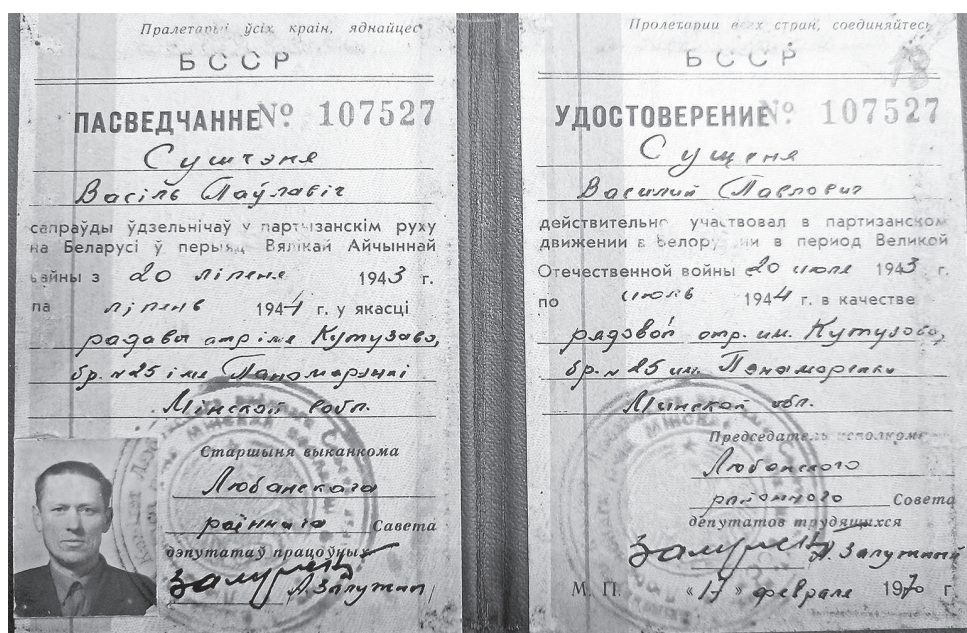 Пралетарыі ўсіх краін, яднайцесь
БССР
ПАСВЕДЧАННЕ № 107527
Сушчэня
Васіль Паўлавіч
сапраўды ўдзельнічаў у партызанскім руху
на Беларусі ў перыяд Вялікай Айчыннай
вайны з 20 ліпеня 1943 г.
па ліпень 1944 г. у якасці
радавы атр імя Кутузава,
бр. №25 імя Панамарэнкі
Мінскай вобл.
Старшыня выканкома
Любанскага
раённага Савета
дэпутатаў працоўных
А. Залужны
Пролетарии всех стран, соединяйтесь
БССР
18
УДОСТОВЕРЕНИЕ № 107527
Сущеня
Василий Павлович
действительно участвовал в партизанском
движении в Белоруссии в период Великой
Отечественной войны 20 июля 1943 г.
по июль 1944 г. в качестве
рядовой отр. им. Кутузова,
бр. №25 им. Понаморенки
Минской обл.
Председатель исполкома
Любанского
районного Совета
депутатов трудящихся
А. Залужный
М. П. «17» февраля 1970 г.